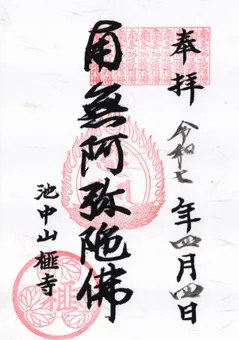 奉拝
令和七年四月四日
南無阿弥陀佛
池中山榧寺
榧